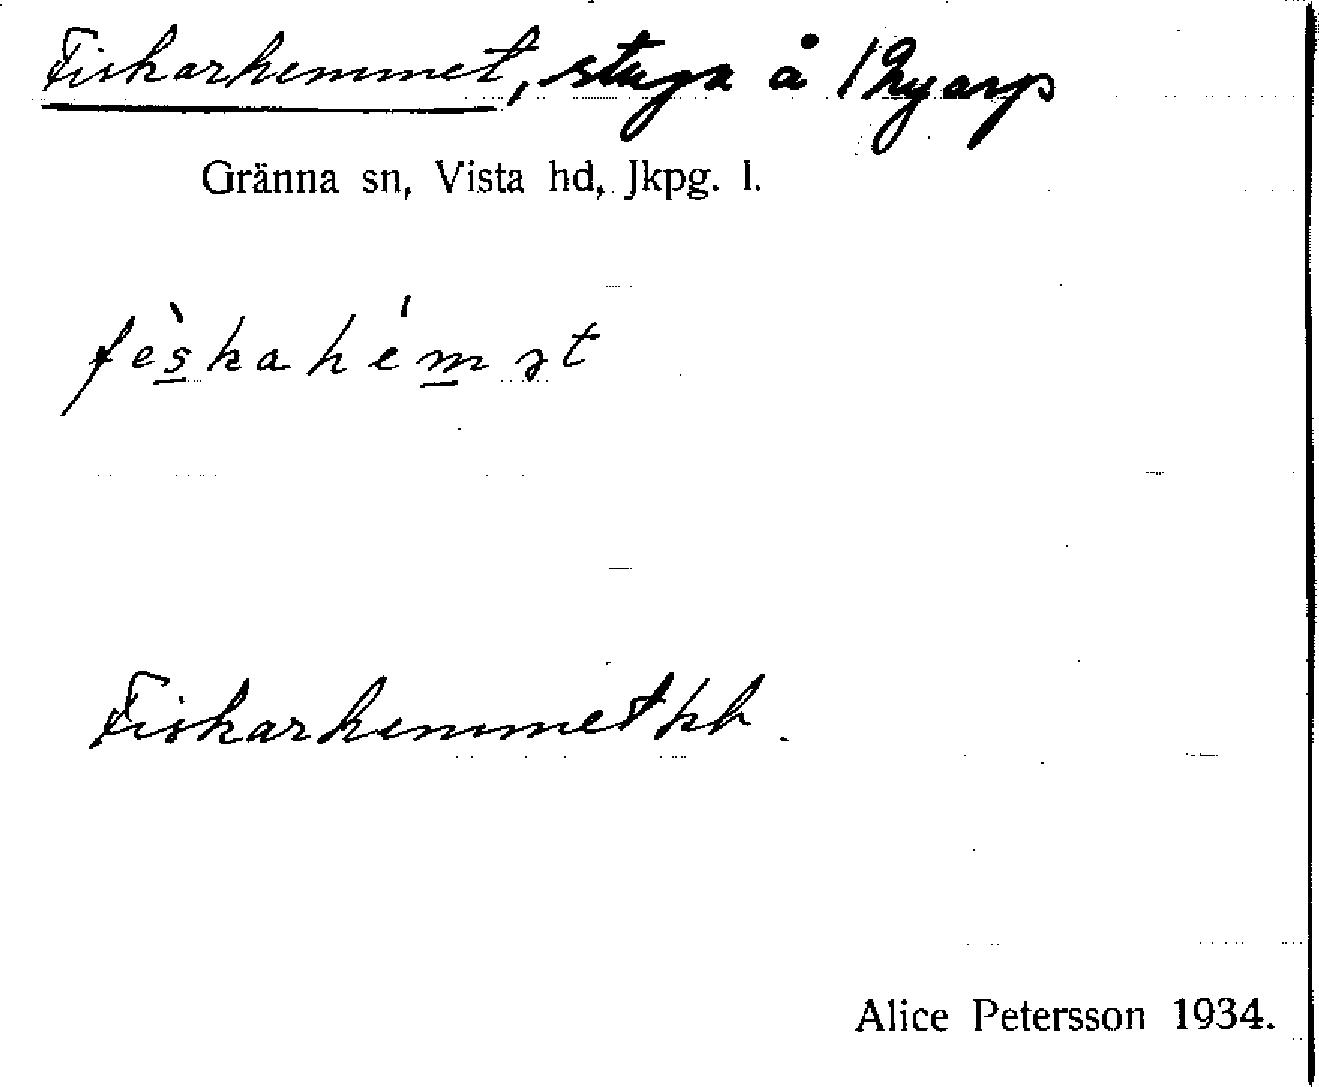 Fiskarhemmet, stuga å Ryarp
Gränna sn, Vista hd, Jkpg. l.
fès̲kahém̲ət
Fiskarhemmet
Alice Petersson 1934.